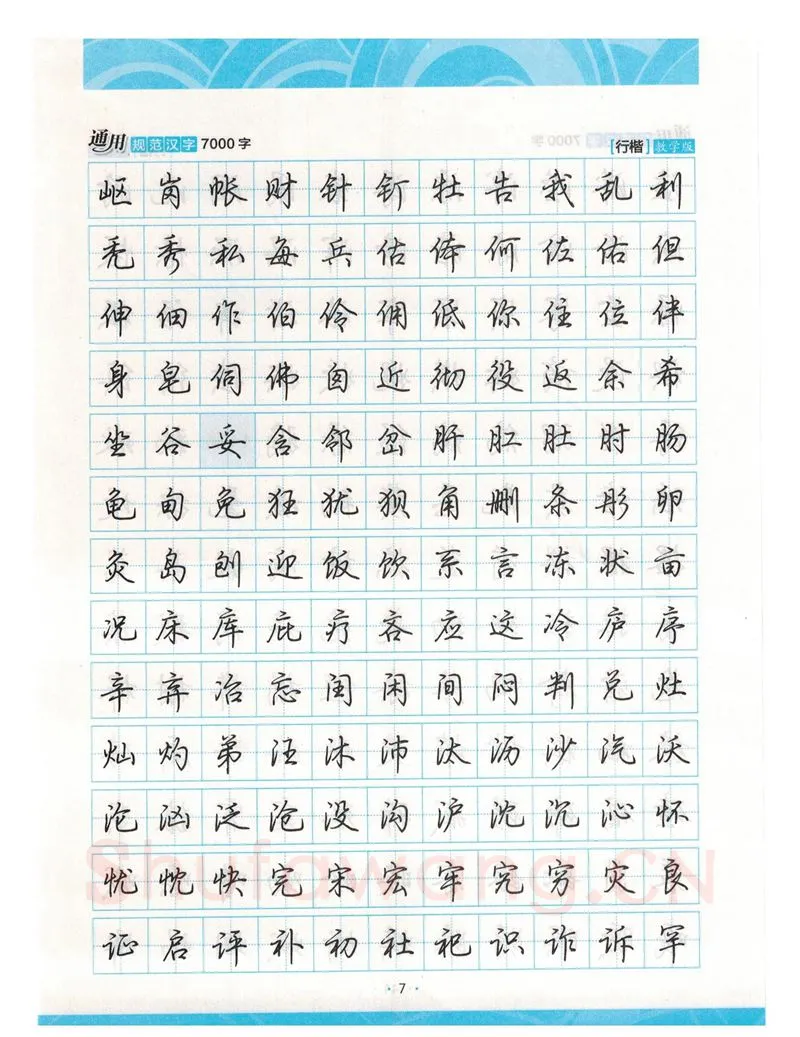 通用规范汉字7000字 [行楷]教学版
岖岗帐财针钉牡告我乱利
秃秀私每兵估体何佐佑但
伸佃作伯伶佣低你住位伴
身皂伺佛囱近彻役返余希
坐谷妥含邻岔肝肛肚肘肠
龟甸免狂犹狈角删条彤卵
灸岛刨迎饭饮系言冻状亩
况床库庇疗吝应这冷庐序
辛弃冶忘闰闲间闷判兑灶
灿灼弟汪沐沛汰沥沙汽沃
沦汹泛沧没沟沪沈沉沁怀
忧忱快完宋宏牢究穷灾良
证启评补初社祀识诈诉罕
·7·
Shufawang.CN